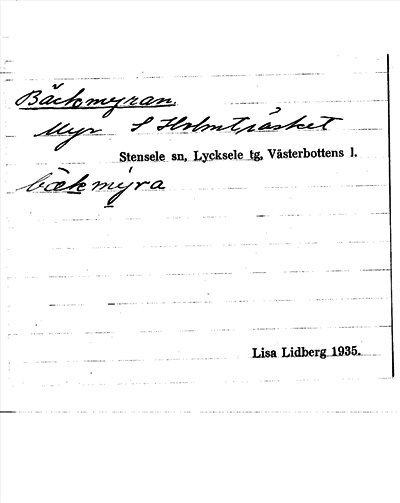 Bäckmyran.
Myr S Holmträsket
Stensele sn, Lycksele tg, Västerbottens l.
bækmyra
Lisa Lidberg 1935.